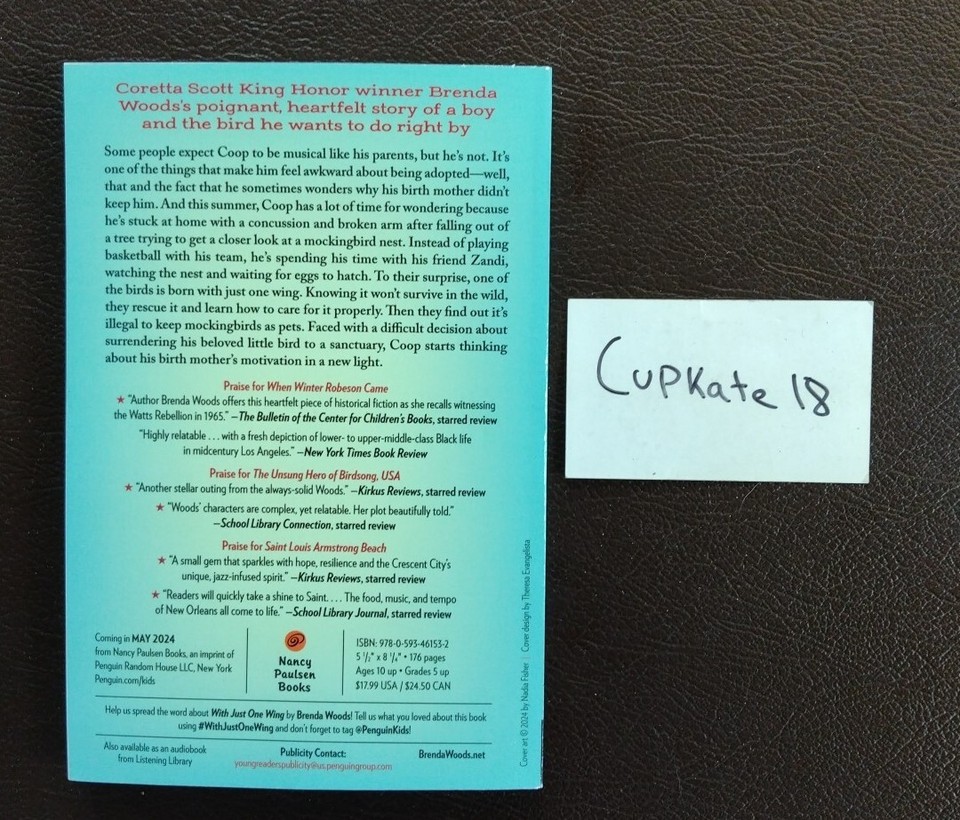 Coretta Scott King Honor winner Brenda
Woods's poignant, heartfelt story of a boy
and the bird he wants to do right by
Some people expect Coop to be musical like his parents, but he's not. It's
one of the things that make him feel awkward about being adopted—well,
that and the fact that he sometimes wonders why his birth mother didn't
keep him. And this summer, Coop has a lot of time for wondering because
he's stuck at home with a concussion and broken arm after falling out of
a tree trying to get a closer look at a mockingbird nest. Instead of playing
basketball with his team, he's spending his time with his friend Zandi,
watching the nest and waiting for eggs to hatch. To their surprise, one of
the birds is born with just one wing. Knowing it won't survive in the wild,
they rescue it and learn how to care for it properly. Then they find out it's
illegal to keep mockingbirds as pets. Faced with a difficult decision about
surrendering his beloved little bird to a sanctuary, Coop starts thinking
about his birth mother's motivation in a new light.
Praise for When Winter Robeson Came
★ "Author Brenda Woods offers this heartfelt piece of historical fiction as she recalls witnessing
the Watts Rebellion in 1965." —The Bulletin of the Center for Children's Books, starred review
"Highly relatable . . . with a fresh depiction of lower- to upper-middle-class Black life
in midcentury Los Angeles." —New York Times Book Review
Praise for The Unsung Hero of Birdsong, USA
★ "Another stellar outing from the always-solid Woods." —Kirkus Reviews, starred review
★ "Woods' characters are complex, yet relatable. Her plot beautifully told."
—School Library Connection, starred review
Praise for Saint Louis Armstrong Beach
★ "A small gem that sparkles with hope, resilience and the Crescent City's
unique, jazz-infused spirit." —Kirkus Reviews, starred review
★ "Readers will quickly take a shine to Saint. . . . The food, music, and tempo
of New Orleans all come to life." —School Library Journal, starred review
Coming in MAY 2024
from Nancy Paulsen Books, an imprint of
Penguin Random House LLC, New York
Penguin.com/kids
Nancy
Paulsen
Books
ISBN: 978-0-593-46153-2
5 1/2" x 8 1/4" • 176 pages
Ages 10 up • Grades 5 up
$17.99 USA / $24.50 CAN
Help us spread the word about With Just One Wing by Brenda Woods! Tell us what you loved about this book
using #WithJustOneWing and don't forget to tag @PenguinKids!
Also available as an audiobook
from Listening Library
Publicity Contact:
youngreaderspublicity@us.penguingroup.com
BrendaWoods.net
Cover art © 2024 by Nadia Fisher | Cover design by Theresa Evangelista
CupKate 18